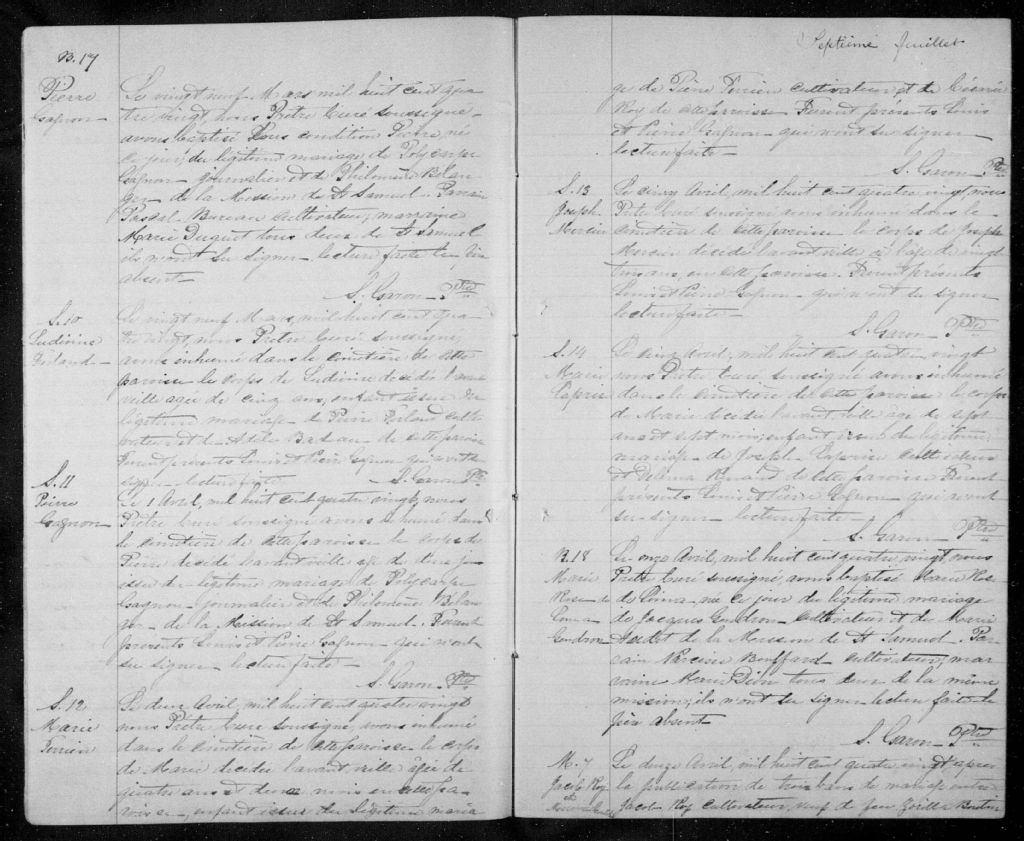 B. 17
Pierre
Gagnon
Le vingt neuf Mars mil huit cent qua
tre vingt, nous Prêtre Curé soussigné
avons baptisé sous condition Pierre, né
ce jour, du légitime mariage de Polycarpe
Gagnon journalier et de Philomène Bélan
ger de la Mission de St Samuel. Parrain
Pascal Bureau Cultivateur; marraine
Marie Duquet tous deux de St Samuel
ils n'ont su signer. lecture faite le père
absent
S. Garon Ptre
S. 10
Ludivine
Ferland
Le vingt neuf Mars, mil huit cent qua
tre vingt, nous Prêtre Curé soussigné,
avons inhumé dans le cimitière de cette
paroisse le corps de Ludivine décédée l'avant
veille agée de cinq ans, enfant issue du
légitime mariage de Pierre Ferland culti
vateur et de Adèle de cette paroisse
Furent présents Louis et Pierre Gagnon qui n'ont su
signer lecture faite S. Garon Ptre
S. 11
Pierre
Gagnon
Le 1 Avril, mil huit cent quatre vingt, nous
Prêtre Curé soussigné avons inhumé dans
le cimitière de cette paroisse le corps de
Pierre décédé l'avant veille agé de deux jours
issu du légitime mariage de Polycarpe
Gagnon journalier et de Philomène Bélan
ger de la Mission de St Samuel. Furent
présents Louis et Pierre Gagnon qui n'ont
su signer lecture faite
S. Garon Ptre
S. 12
Marie
Le deux Avril, mil huit cent quatre vingt
nous Prêtre Curé soussigné avons inhumé
dans le cimitière de cette paroisse le corps
de Marie décédée l'avant veille agée de
quatre ans et deux mois en cette pa
roisse, enfant issue du légitime maria
Septième Juillet
ge de Pierre cultivateur et de
Roy de cette paroisse Furent présents Louis
et Pierre Gagnon qui n'ont su signer
lecture faite
S. Garon Ptre
S. 13
Joseph
Mercier
Le cinq Avril, mil huit cent quatre vingt, nous
Prêtre Curé soussigné avons inhumé dans le
cimitière de cette paroisse le corps de Joseph
Mercier décédé l'avant veille à l'age de vingt
trois ans, en cette paroisse. Furent présents
Louis et Pierre Gagnon qui n'ont su signer
lecture faite
S. Garon Ptre
S. 14
Marie
Laprise
Le cinq Avril, mil huit cent quatre vingt
nous Prêtre Curé soussigné avons inhumé
dans le cimitière de cette paroisse le corps
de Marie décédée l'avant veille age de sept
ans et sept mois, enfant issu du légitime
mariage de Joseph Laprise cultivateur
et Delima Renaud de cette paroisse Furent
présents Louis et Pierre Gagnon qui n'ont
su signer lecture faite
S. Garon Ptre
B. 18
Marie
Rose de
Lima
Gendron
Le onze Avril, mil huit cent quatre vingt, nous
Prêtre Curé soussigné, avons baptisé Marie Rose
de Lima, née ce jour du légitime mariage
de Jacques Gendron Cultivateur et de Marie
de la Mission de St Samuel. Par
rain Narcisse Bouffard cultivateur; mar
raine Marie Dion tous deux de la même
mission; ils n'ont su signer lecture faite le
père absent
S. Garon Ptre
M. 7
Jacob Roy
et
Le douze Avril, mil huit cent quatre vingt après
la publication de trois bans de mariage entre
Jacob Roy cultivateur, veuf de feu Boutin